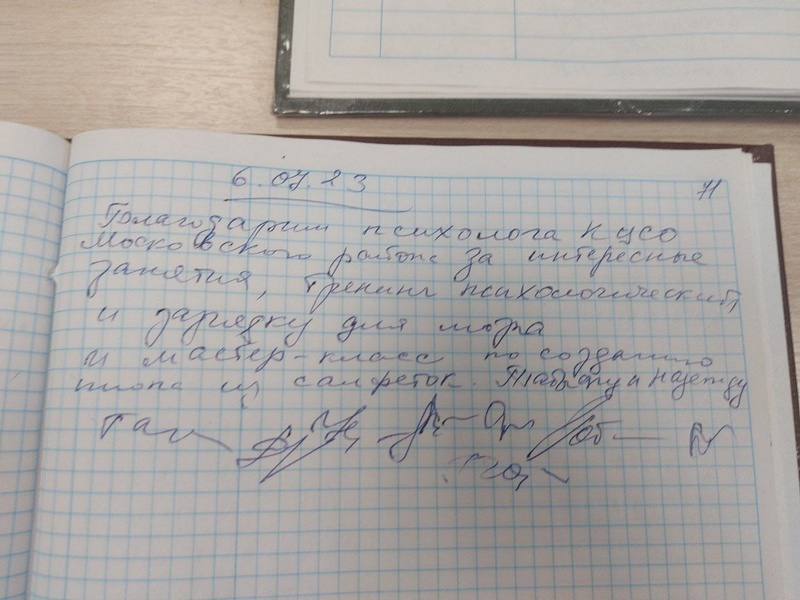 6.07.23
71
Благодарим психолога КЦСО
Московского района за интересные
занятия, тренинг психологический
и зарядку для мозга
и мастер-класс по созданию
из салфеток. Татьяну и Надежду